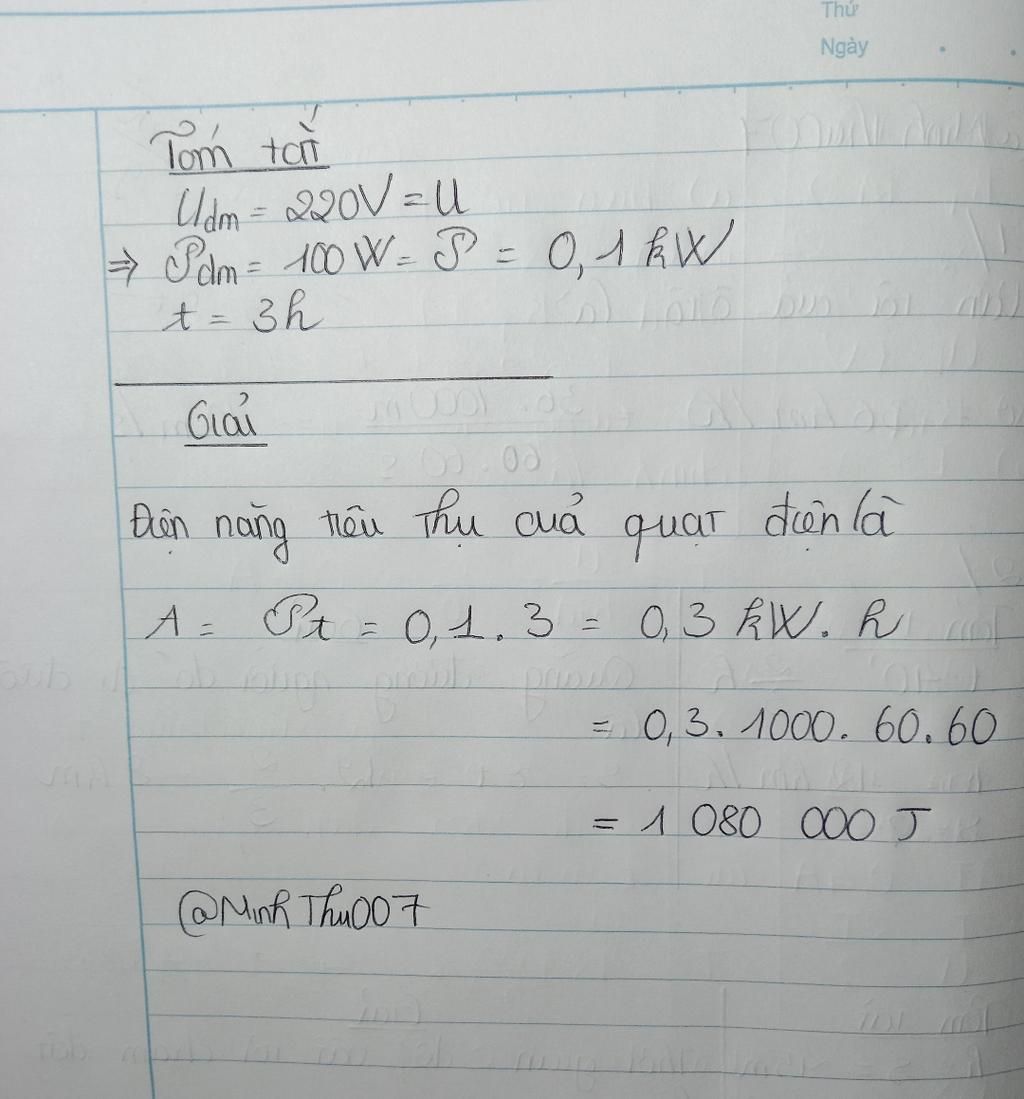 Thứ
Ngày
Tóm tắt
Uđm = 220V = U
⇒ 𝒫đm = 100 W = 𝒫 = 0,1 kW
t = 3h
Giải
Điện năng tiêu thụ của quạt điện là
A = 𝒫t = 0,1 . 3 = 0,3 kW. h
= 0,3. 1000. 60. 60
= 1 080 000 J
@MinhThu007